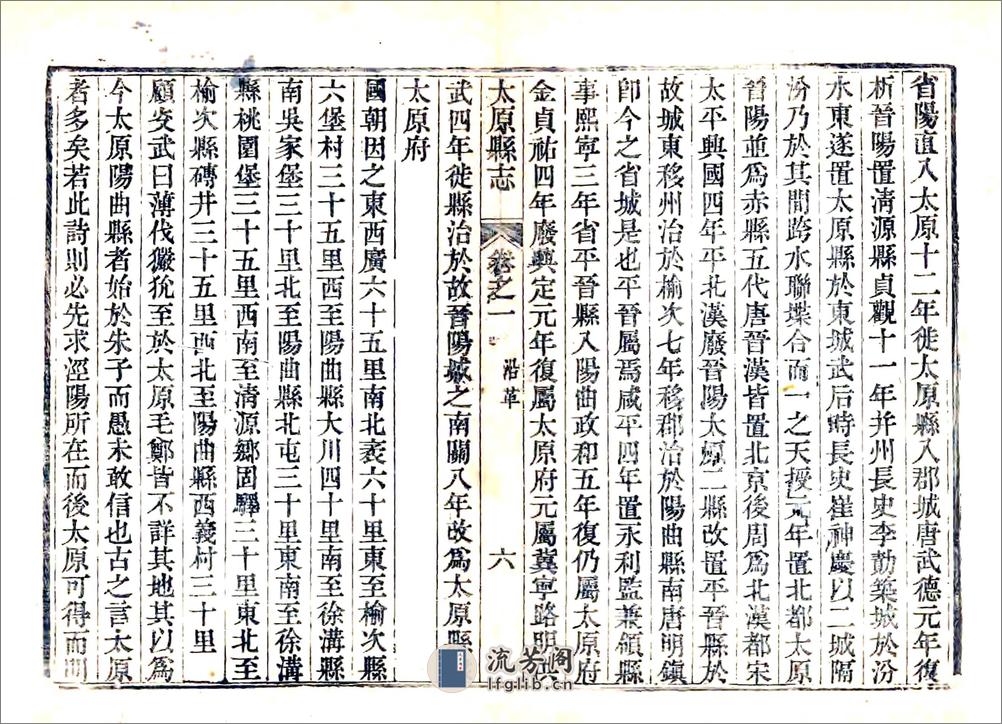 省陽直入太原十二年徙太原縣入郡城唐武德元年復
析晉陽置清源縣貞觀十一年并州長史李勣築城於汾
水東遂置太原縣於東城武后時長史崔神慶以二城隔
汾乃於其間跨水聯堞合而一之天授元年置北都太原
晉陽並爲赤縣五代唐晉漢皆置北京後周爲北漢都宋
太平興國四年平北漢廢晉陽太原二縣改置平晉縣於
故城東移州治於榆次七年移郡治於陽曲縣南唐明鎮
卽今之省城是也平晉屬焉咸平四年置永利監兼領縣
事熙寧三年省平晉縣入陽曲政和五年復仍屬太原府
金貞祐四年廢興定元年復屬太原府元屬冀寧路明洪
太原縣志 卷之一 沿革 六
武四年徙縣治於故晉陽城之南關八年改爲太原縣屬
太原府
國朝因之東西廣六十五里南北袤六十里東至榆次縣
六堡村三十五里西至陽曲縣大川四十里南至徐溝縣
南吳家堡三十里北至陽曲縣北屯三十里東南至徐溝
縣桃園堡三十五里西南至清源鄉固驛三十里東北至
榆次縣磚井三十五里西北至陽曲縣西義村三十里
顧炎武曰薄伐玁狁至於太原毛鄭皆不詳其地其以爲
今太原陽曲縣者始於朱子而愚未敢信也古之言太原
者多矣若此詩則必先求涇陽所在而後太原可得而明
流芳阁
lfglib.cn